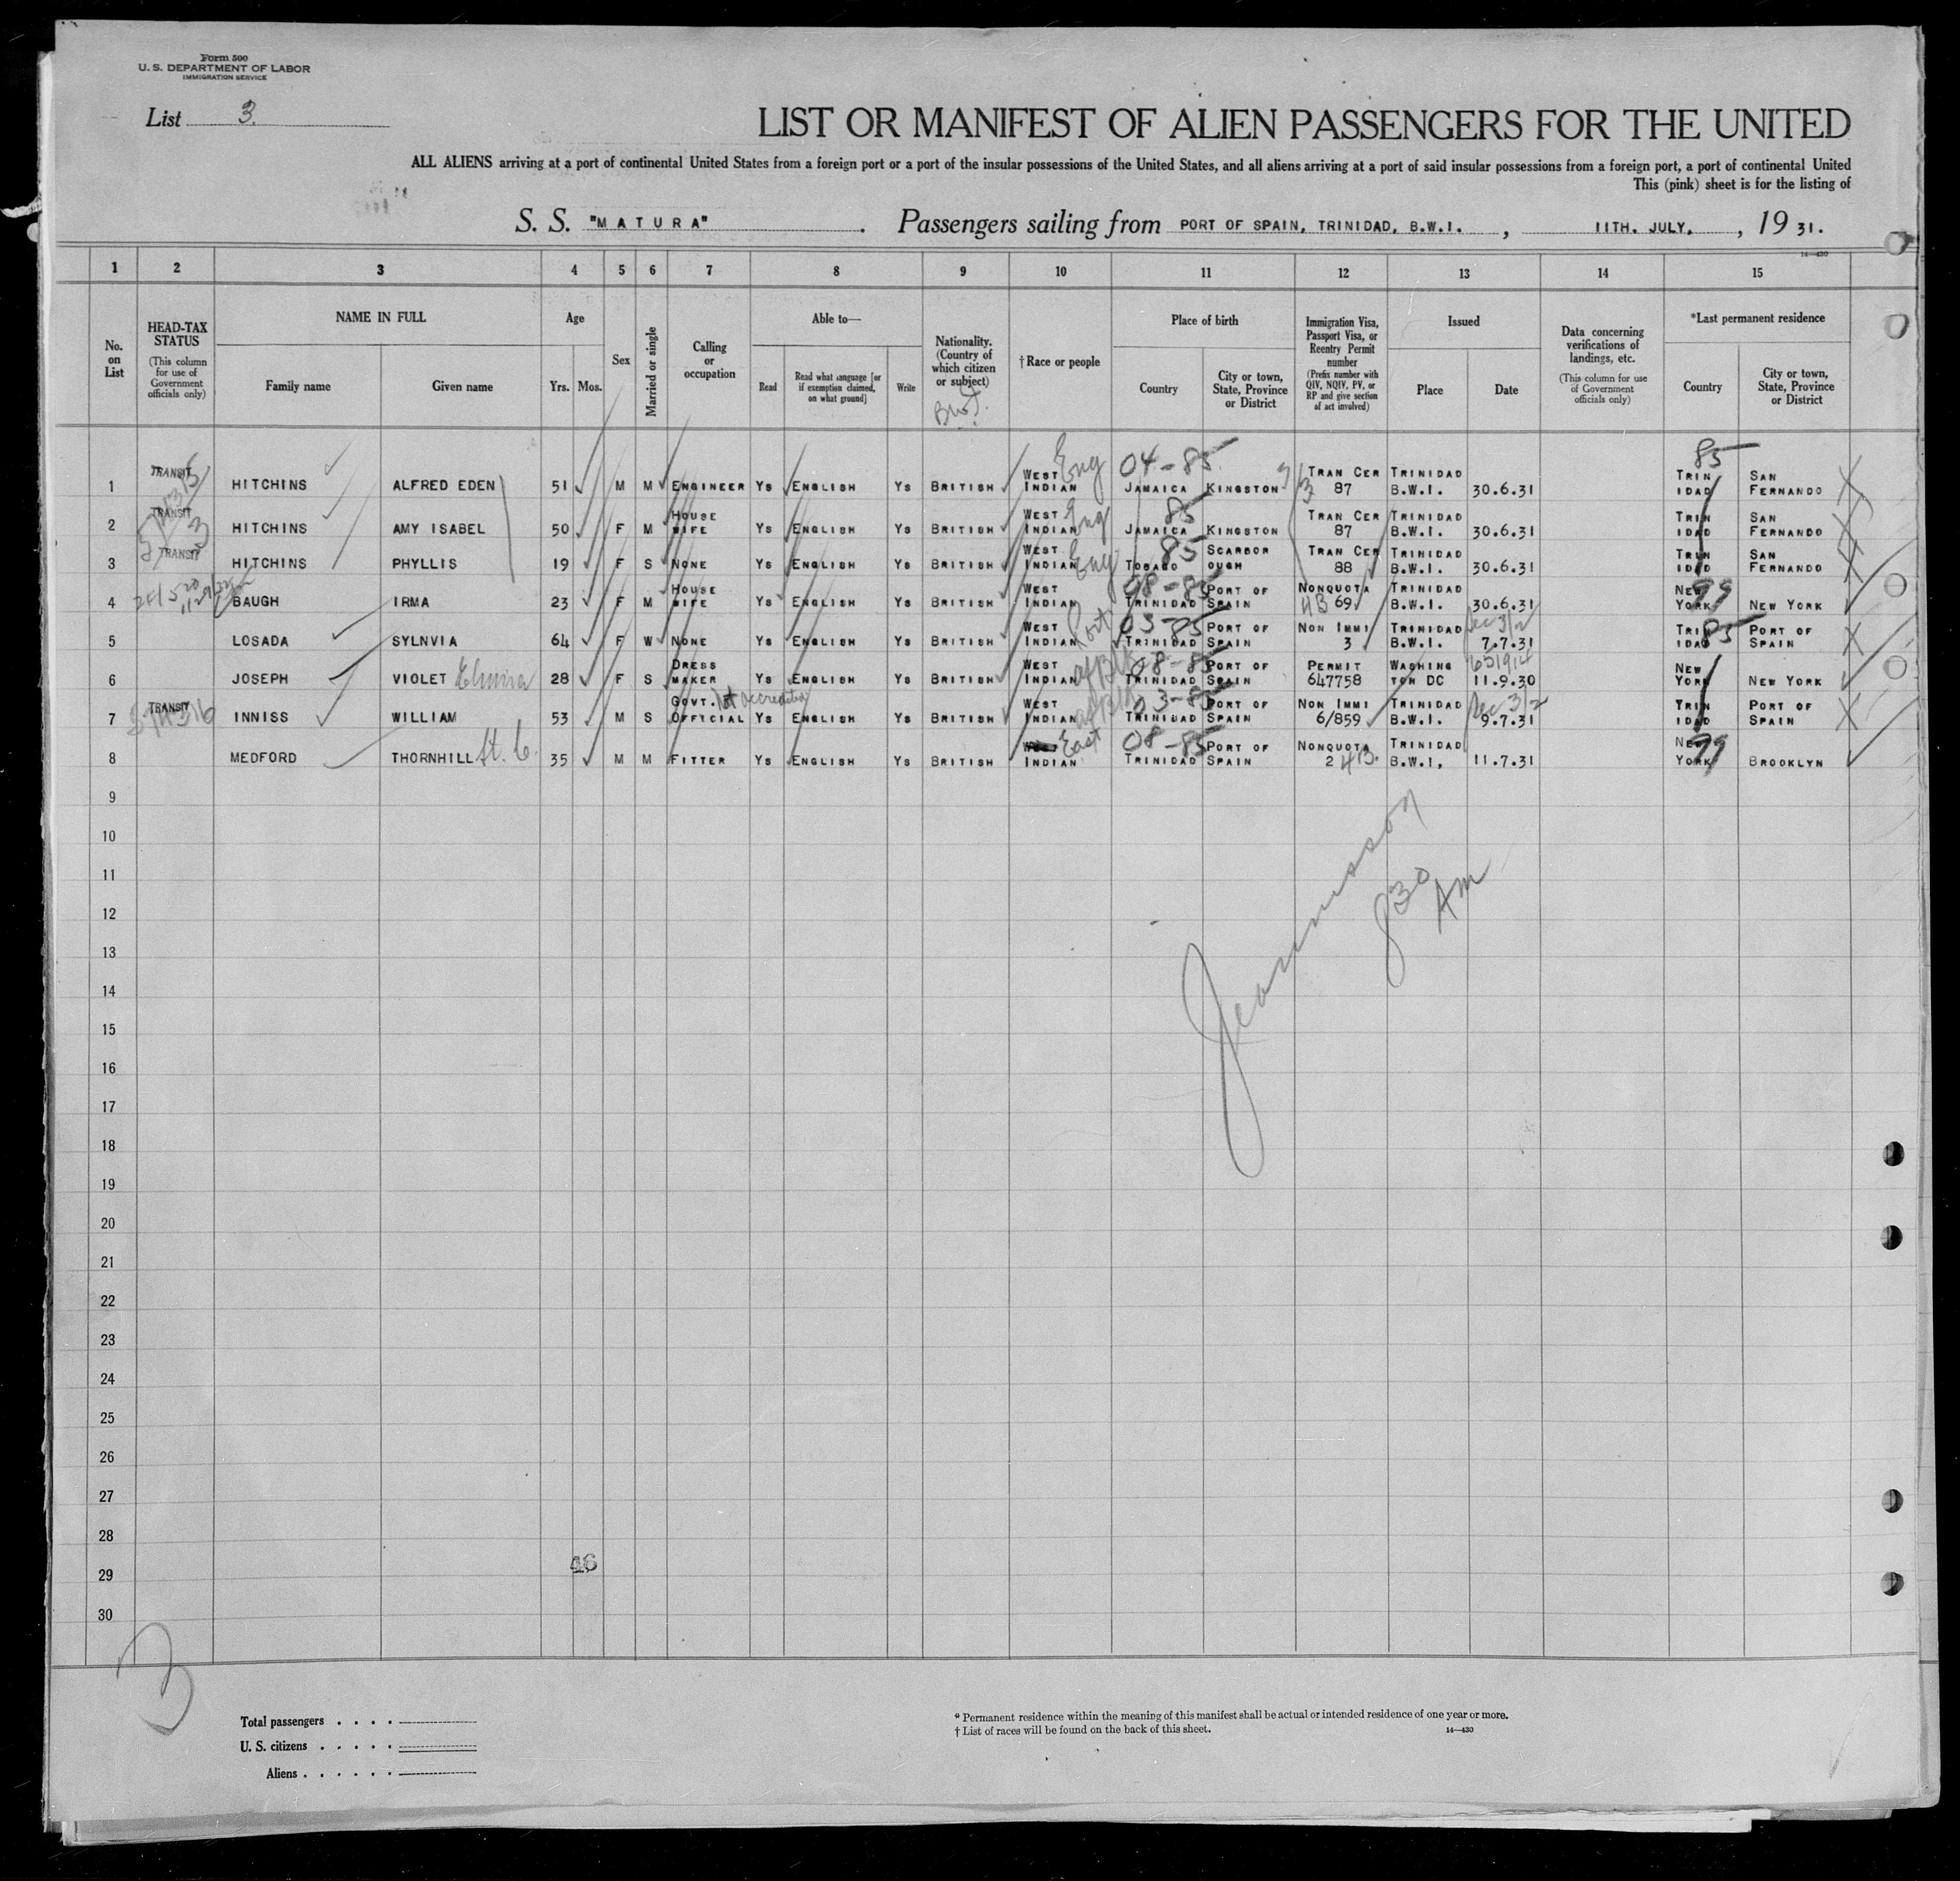 Form 500
U. S. DEPARTMENT OF LABOR
IMMIGRATION SERVICE
List 3.
LIST OR MANIFEST OF ALIEN PASSENGERS FOR THE UNITED
ALL ALIENS arriving at a port of continental United States from a foreign port or a port of the insular possessions of the United States, and all aliens arriving at a port of said insular possessions from a foreign port, a port of continental United
This (pink) sheet is for the listing of
S. S. "MATURA". Passengers sailing from PORT OF SPAIN, TRINIDAD, B.W.I., 11TH. JULY, , 19 31.
14—430
1 2 3 4 5 6 7 8 9 10 11 12 13 14 15
No. on List
HEAD-TAX STATUS
(This column for use of Government officials only)
NAME IN FULL
Family name Given name
Age
Yrs. Mos.
Sex
Married or single
Calling or occupation
Able to—
Read
Read what language [or if exemption claimed, on what ground]
Write
Nationality. (Country of which citizen or subject)
†Race or people
Place of birth
Country
City or town, State, Province or District
Immigration Visa, Passport Visa, or Reentry Permit number
(Prefix number with QIV, NQIV, PV, or RP and give section of act involved)
Issued
Place Date
Data concerning verifications of landings, etc.
(This column for use of Government officials only)
*Last permanent residence
Country
City or town, State, Province or District
1 TRANSIT HITCHINS ALFRED EDEN 51 M M ENGINEER YS ENGLISH YS BRITISH WEST INDIAN Eng 04-85 JAMAICA KINGSTON TRAN CER 87 TRINIDAD B.W.I. 30.6.31 85 TRINIDAD SAN FERNANDO
2 TRANSIT HITCHINS AMY ISABEL 50 F M HOUSE WIFE YS ENGLISH YS BRITISH WEST INDIAN Eng 85 JAMAICA KINGSTON TRAN CER 87 TRINIDAD B.W.I. 30.6.31 TRINIDAD SAN FERNANDO
3 TRANSIT HITCHINS PHYLLIS 19 F S NONE YS ENGLISH YS BRITISH WEST INDIAN Eng 85 TOBAGO SCARBOROUGH TRAN CER 88 TRINIDAD B.W.I. 30.6.31 TRINIDAD SAN FERNANDO
4 BAUGH IRMA 23 F M HOUSE WIFE YS ENGLISH YS BRITISH WEST INDIAN 08-85 TRINIDAD PORT OF SPAIN NONQUOTA 4B 69 TRINIDAD B.W.I. 30.6.31 99 NEW YORK NEW YORK
5 LOSADA SYLNVIA 64 F W NONE YS ENGLISH YS BRITISH WEST INDIAN Port 03-85 TRINIDAD PORT OF SPAIN NON IMMI 3 TRINIDAD B.W.I. Sec 3/2 7.7.31 85 TRINIDAD PORT OF SPAIN
6 JOSEPH VIOLET Elmira 28 F S DRESS MAKER YS ENGLISH YS BRITISH WEST INDIAN 08-85 TRINIDAD PORT OF SPAIN PERMIT 647758 WASHINGTON DC 11.9.30 NEW YORK NEW YORK
7 TRANSIT INNISS WILLIAM 53 M S GOVT. OFFICIAL YS ENGLISH YS BRITISH WEST INDIAN 03-85 TRINIDAD PORT OF SPAIN NON IMMI 6/859 TRINIDAD B.W.I. Sec 3/2 9.7.31 TRINIDAD PORT OF SPAIN
8 MEDFORD THORNHILL St. C. 35 M M FITTER YS ENGLISH YS BRITISH East INDIAN 08-85 TRINIDAD PORT OF SPAIN NONQUOTA 2 4B. TRINIDAD B.W.I. 11.7.31 99 NEW YORK BROOKLYN
9
10
11
12
13
14
15
16
17
18
19
20
21
22
23
24
25
26
27
28
29
30
830 AM
46
3
Total passengers . . . .
U. S. citizens . . . . .
Aliens . . . . . .
* Permanent residence within the meaning of this manifest shall be actual or intended residence of one year or more.
† List of races will be found on the back of this sheet.
14—430